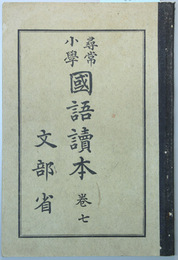 尋常
小學
國語讀本
卷七
文部省